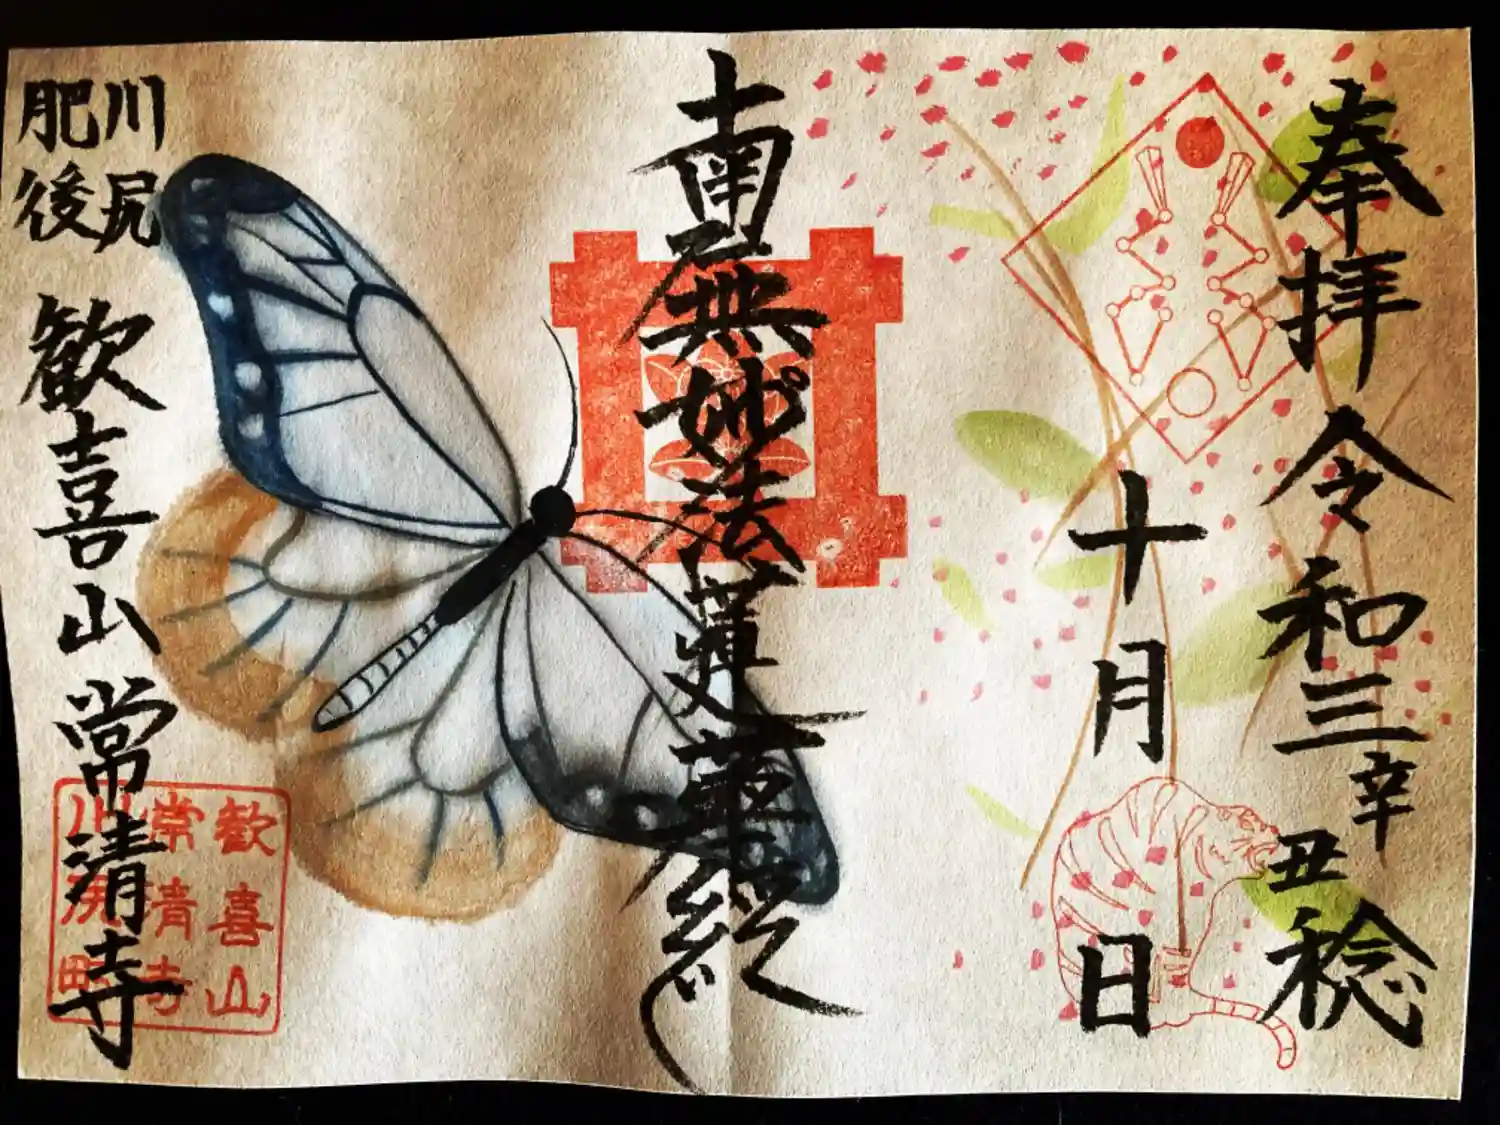 奉拝 令和三辛丑稔
十月 日
南無妙法蓮華経
川尻
肥後
歓喜山 常清寺
歓喜山
常清寺